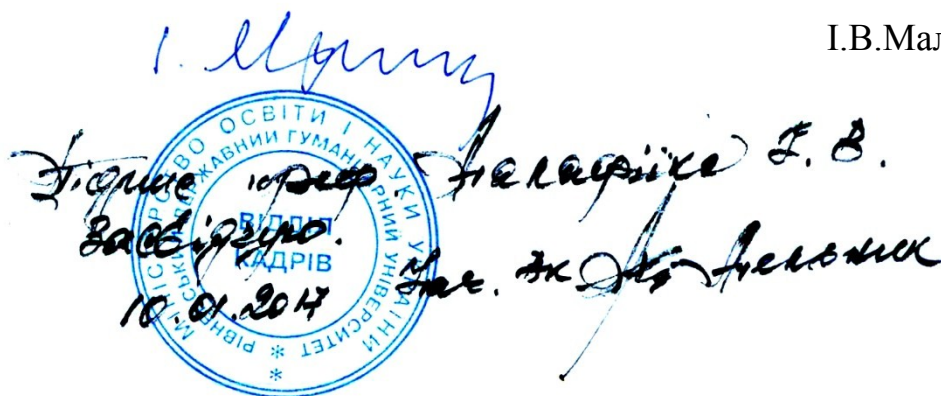 І.В.Мал
Підпис проф. Малафіїка І. В.
засвідчую.
10.01.2017 Нач. ВК
МІНІСТЕРСТВО ОСВІТИ І НАУКИ УКРАЇНИ
РІВНЕНСЬКИЙ ДЕРЖАВНИЙ ГУМАНІТАРНИЙ УНІВЕРСИТЕТ
ВІДДІЛ
КАДРІВ